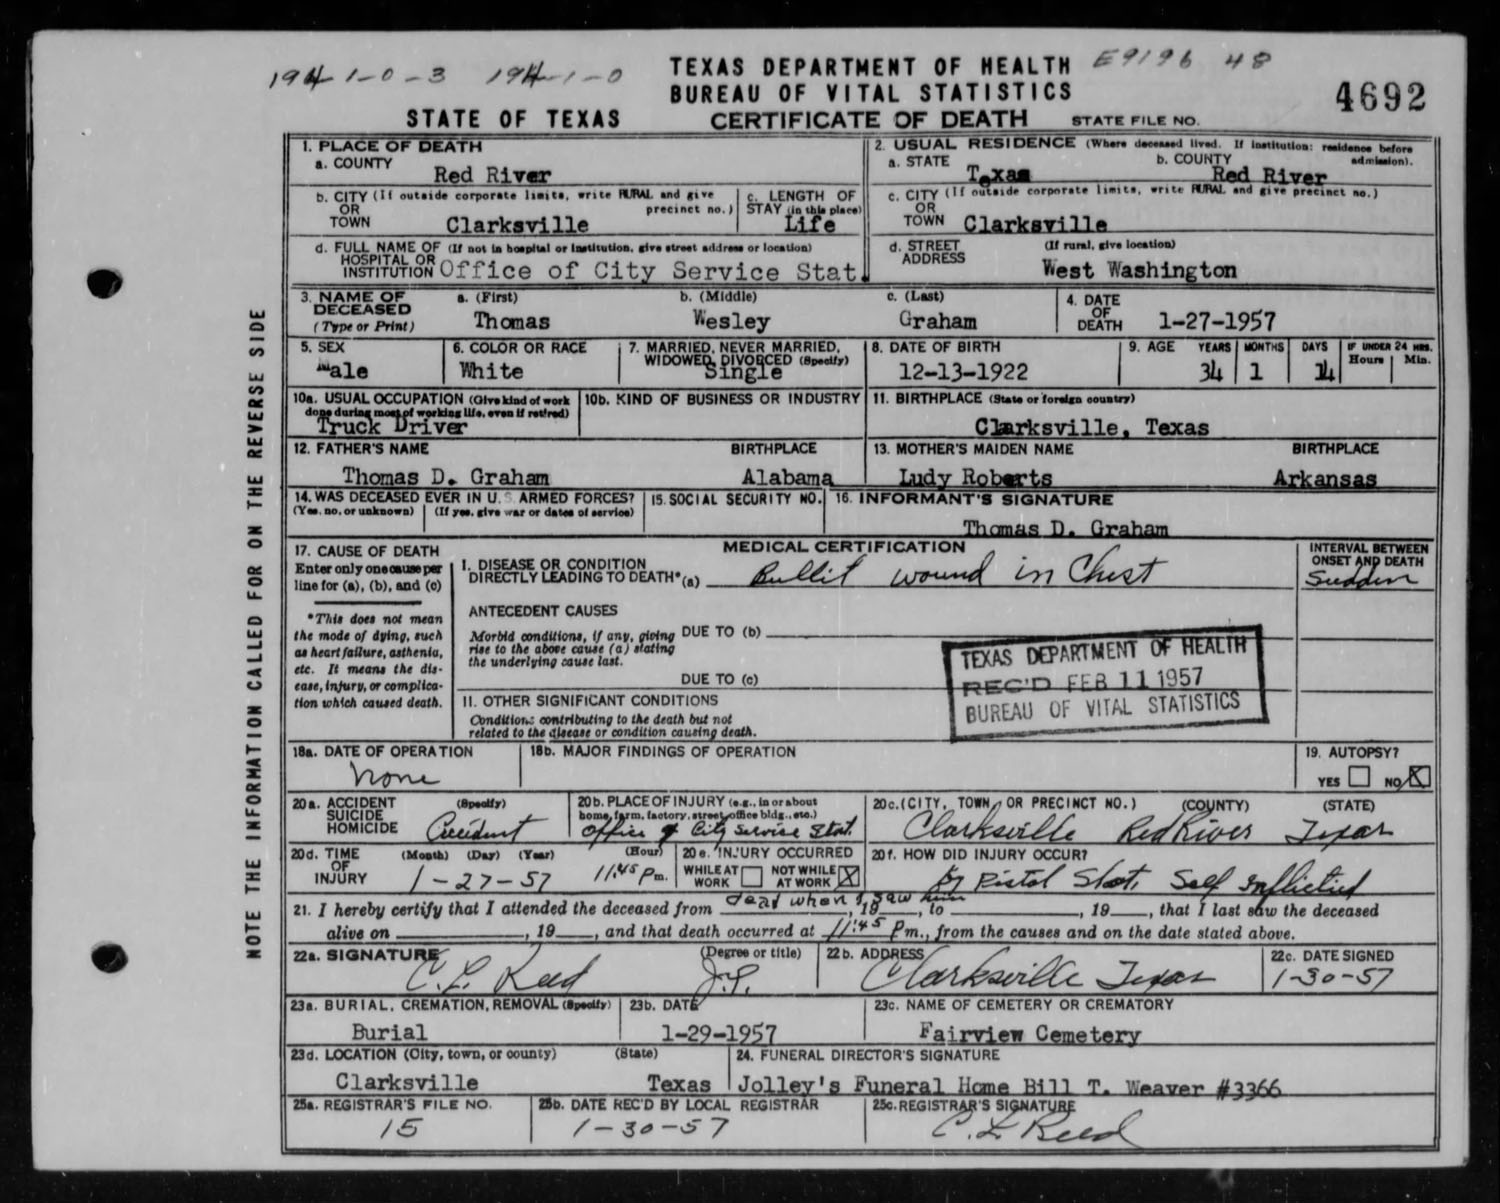 194 1-0-3 194-1-0
TEXAS DEPARTMENT OF HEALTH E9196 48
BUREAU OF VITAL STATISTICS
STATE OF TEXAS CERTIFICATE OF DEATH STATE FILE NO. 4692
NOTE THE INFORMATION CALLED FOR ON THE REVERSE SIDE
1. PLACE OF DEATH
a. COUNTY
Red River
2. USUAL RESIDENCE (Where deceased lived. If institution: residence before admission).
a. STATE b. COUNTY
Texas Red River
b. CITY (If outside corporate limits, write RURAL and give precinct no.)
OR
TOWN Clarksville
c. LENGTH OF
STAY (in this place)
Life
c. CITY (If outside corporate limits, write RURAL and give precinct no.)
OR
TOWN Clarksville
d. FULL NAME OF (If not in hospital or institution, give street address or location)
HOSPITAL OR
INSTITUTION Office of City Service Stat.
d. STREET (If rural, give location)
ADDRESS
West Washington
3. NAME OF a. (First) b. (Middle) c. (Last)
DECEASED
(Type or Print) Thomas Wesley Graham
4. DATE
OF
DEATH 1-27-1957
5. SEX
Male
6. COLOR OR RACE
White
7. MARRIED, NEVER MARRIED,
WIDOWED, DIVORCED (Specify)
Single
8. DATE OF BIRTH
12-13-1922
9. AGE YEARS MONTHS DAYS IF UNDER 24 HRS.
Hours Min.
34 1 14
10a. USUAL OCCUPATION (Give kind of work
done during most of working life, even if retired)
Truck Driver
10b. KIND OF BUSINESS OR INDUSTRY
11. BIRTHPLACE (State or foreign country)
Clarksville, Texas
12. FATHER'S NAME BIRTHPLACE
Thomas D. Graham Alabama
13. MOTHER'S MAIDEN NAME BIRTHPLACE
Ludy Roberts Arkansas
14. WAS DECEASED EVER IN U. S. ARMED FORCES?
(Yes, no, or unknown) (If yes, give war or dates of service)
15. SOCIAL SECURITY NO.
16. INFORMANT'S SIGNATURE
Thomas D. Graham
MEDICAL CERTIFICATION
17. CAUSE OF DEATH
Enter only one cause per
line for (a), (b), and (c)
*This does not mean
the mode of dying, such
as heart failure, asthenia,
etc. It means the dis-
ease, injury, or complica-
tion which caused death.
I. DISEASE OR CONDITION
DIRECTLY LEADING TO DEATH*(a) Bullit wound in Chest
INTERVAL BETWEEN
ONSET AND DEATH
Sudden
ANTECEDENT CAUSES
Morbid conditions, if any, giving DUE TO (b)
rise to the above cause (a) stating
the underlying cause last.
DUE TO (c)
TEXAS DEPARTMENT OF HEALTH
REC'D FEB 11 1957
BUREAU OF VITAL STATISTICS
II. OTHER SIGNIFICANT CONDITIONS
Conditions contributing to the death but not
related to the disease or condition causing death.
18a. DATE OF OPERATION
None
18b. MAJOR FINDINGS OF OPERATION
19. AUTOPSY?
YES NO X
20a. ACCIDENT (Specify)
SUICIDE
HOMICIDE Accident
20b. PLACE OF INJURY (e.g., in or about
home, farm, factory, street, office bldg., etc.)
Office of City Service Stat.
20c. (CITY, TOWN, OR PRECINCT NO.) (COUNTY) (STATE)
Clarksville Red River Texas
20d. TIME (Month) (Day) (Year) (Hour)
OF
INJURY 1-27-57 11:45 Pm.
20e. INJURY OCCURRED
WHILE AT WORK NOT WHILE AT WORK X
20f. HOW DID INJURY OCCUR?
By Pistol Shot, Self Inflictied
21. I hereby certify that I attended the deceased from dead when I saw him, 19, to , 19, that I last saw the deceased
alive on , 19, and that death occurred at 11:45 Pm., from the causes and on the date stated above.
22a. SIGNATURE (Degree or title)
C. L. Reed J.P.
22b. ADDRESS
Clarksville Texas
22c. DATE SIGNED
1-30-57
23a. BURIAL, CREMATION, REMOVAL (Specify)
Burial
23b. DATE
1-29-1957
23c. NAME OF CEMETERY OR CREMATORY
Fairview Cemetery
23d. LOCATION (City, town, or county) (State)
Clarksville Texas
24. FUNERAL DIRECTOR'S SIGNATURE
Jolley's Funeral Home Bill T. Weaver #3366
25a. REGISTRAR'S FILE NO.
15
25b. DATE REC'D BY LOCAL REGISTRAR
1-30-57
25c. REGISTRAR'S SIGNATURE
C. L. Reed